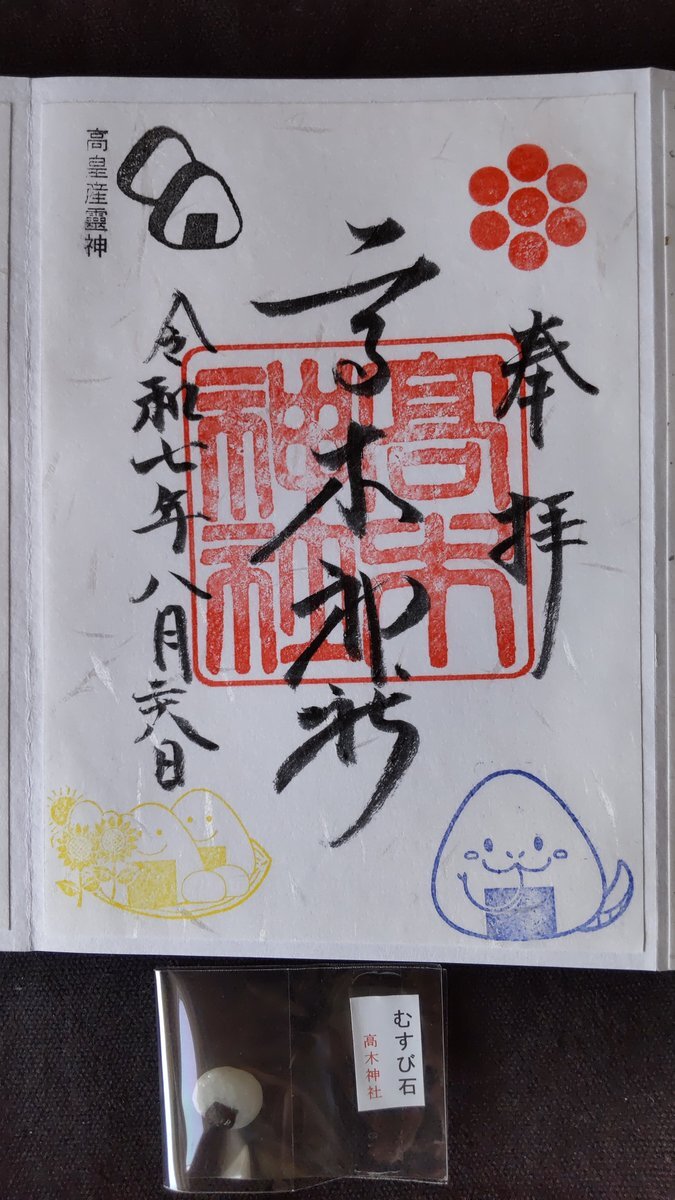 奉拝
高木神社
高木神社
令和七年八月二八日
高皇産靈神
むすび石
高木神社